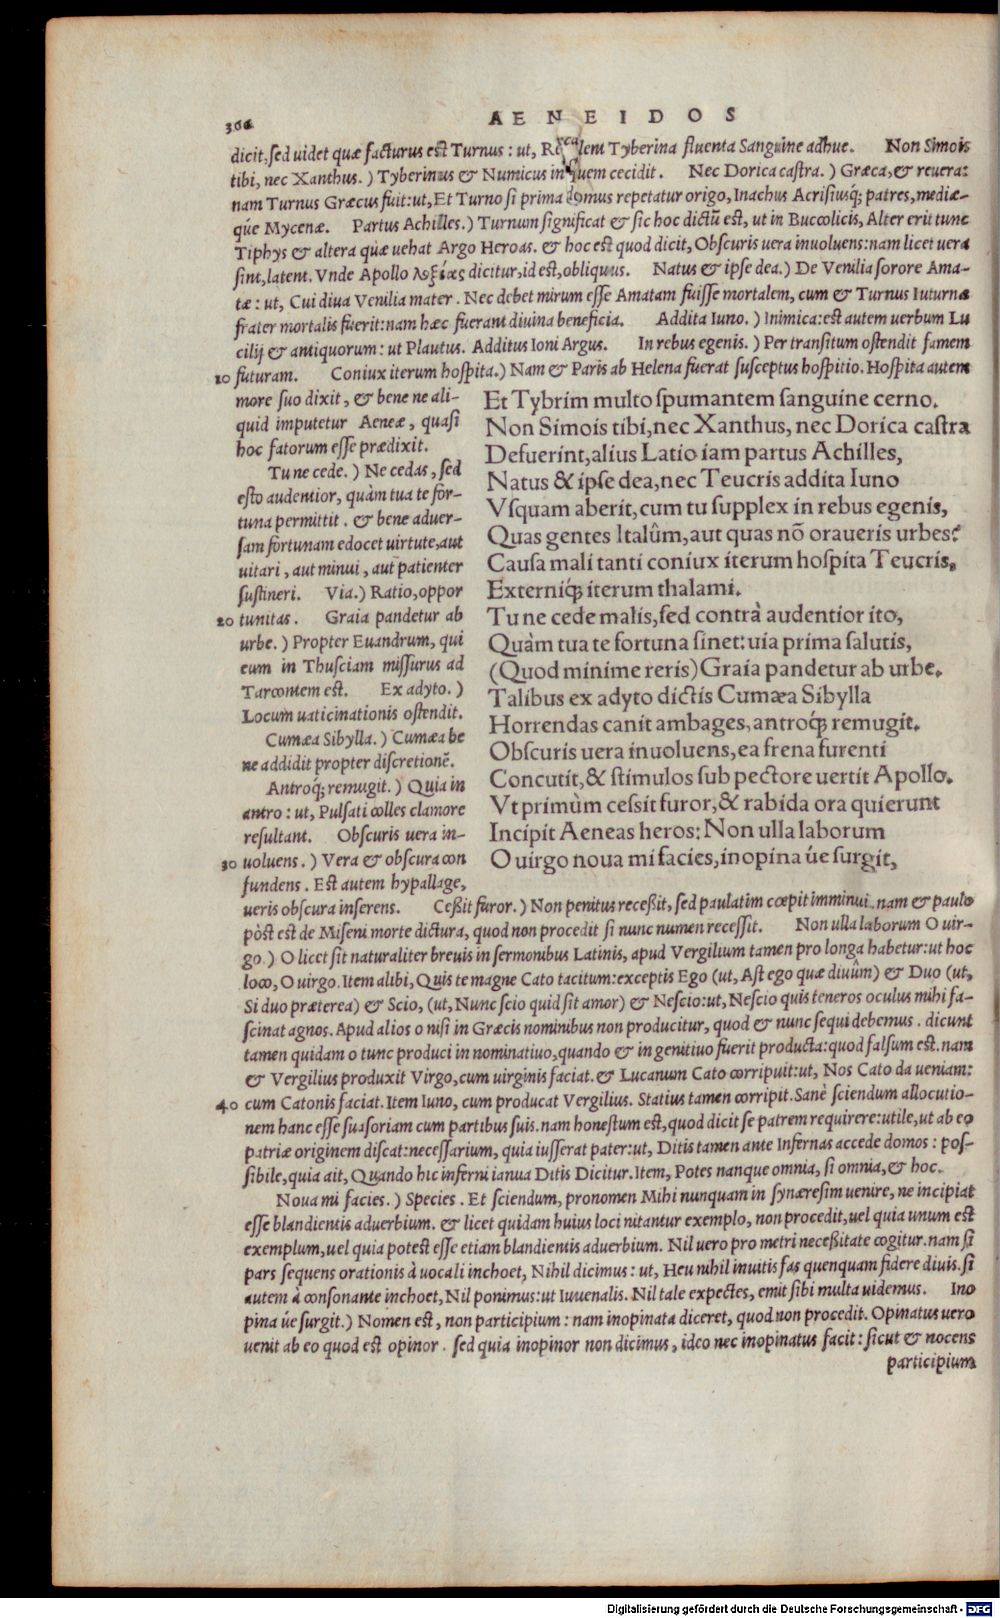 366
AENEIDOS
dicit, sed uidet quæ facturus est Turnus: ut, Recalem Tyberina fluenta Sanguine adhue. Non Simois
tibi, nec Xanthus.) Tyberinus & Numicus in quem cecidit. Nec Dorica castra.) Græca, & reuera:
nam Turnus Græcus fuit: ut, Et Turno si prima domus repetatur origo, Inachus Acrisiusq́; patres, mediæ-
qúe Mycenæ. Partus Achilles.) Turnum significat & sic hoc dictũ est, ut in Buccolicis, Alter erit tunc
Tiphys & altera quæ uehat Argo Heroas. & hoc est quod dicit, Obscuris uera inuoluens: nam licet uera
sint, latent. Vnde Apollo λοξίας dicitur, id est, obliquus. Natus & ipse dea.) De Venilia sorore Ama-
tæ: ut, Cui diua Venilia mater. Nec debet mirum esse Amatam fuisse mortalem, cum & Turnus Iuturnæ
frater mortalis fuerit: nam hæc fuerant diuina beneficia. Addita Iuno.) Inimica: est autem uerbum Lu
cilij & antiquorum: ut Plautus. Additus Ioni Argus. In rebus egenis.) Per transitum ostendit famem
10 futuram. Coniux iterum hospita.) Nam & Paris ab Helena fuerat susceptus hospitio. Hospita autem
more suo dixit, & bene ne ali-
quid imputetur Aeneæ, quasi
hoc fatorum esse prædixit.
Tu ne cede.) Ne cedas, sed
esto audentior, quàm tua te for-
tuna permittit. & bene aduer-
sam fortunam edocet uirtute, aut
uitari, aut minui, aut patienter
sustineri. Via.) Ratio, oppor
20 tunitas. Graia pandetur ab
urbe.) Propter Euandrum, qui
eum in Thusciam missurus ad
Tarcontem est. Ex adyto.)
Locum uaticinationis ostendit.
Cumæa Sibylla.) Cumæa be
ne addidit propter discretionẽ.
Antroq́; remugit.) Quia in
antro: ut, Pulsati colles clamore
resultant. Obscuris uera in-
30 uoluens.) Vera & obscura con
fundens. Est autem hypallage,
Et Tybrim multo spumantem sanguine cerno.
Non Simois tibi, nec Xanthus, nec Dorica castra
Defuerint, alius Latio iam partus Achilles,
Natus & ipse dea, nec Teucris addita Iuno
Vsquam aberit, cum tu supplex in rebus egenis,
Quas gentes Italûm, aut quas nõ oraueris urbes?
Causa mali tanti coniux iterum hospita Teucris,
Externiq́; iterum thalami.
Tu ne cede malis, sed contrà audentior ito,
Quàm tua te fortuna sinet: uia prima salutis,
(Quod minime reris) Graia pandetur ab urbe.
Talibus ex adyto dictis Cumæa Sibylla
Horrendas canit ambages, antroq́; remugit.
Obscuris uera inuoluens, ea frena furenti
Concutit, & stimulos sub pectore uertit Apollo.
Vt primùm cessit furor, & rabida ora quierunt
Incipit Aeneas heros: Non ulla laborum
O uirgo noua mi facies, inopina úe surgit,
ueris obscura inserens. Ceßit furor.) Non penitus receßit, sed paulatim cœpit imminui. nam & paulo
pòst est de Miseni morte dictura, quod non procedit si nunc numen recessit. Non ulla laborum O uir-
go.) O licet sit naturaliter breuis in sermonibus Latinis, apud Vergilium tamen pro longa habetur: ut hoc
loco, O uirgo. Item alibi, Quis te magne Cato tacitum: exceptis Ego (ut, Ast ego quæ diuûm) & Duo (ut,
Si duo præterea) & Scio, (ut, Nunc scio quid sit amor) & Nescio: ut, Nescio quis teneros oculus mihi fa-
scinat agnos. Apud alios o nisi in Græcis nominibus non producitur, quod & nunc sequi debemus. dicunt
tamen quidam o tunc produci in nominatiuo, quando & in genitiuo fuerit producta: quod falsum est. nam
& Vergilius produxit Virgo, cum uirginis faciat. & Lucanum Cato corripuit: ut, Nos Cato da ueniam:
40 cum Catonis faciat. Item Iuno, cum producat Vergilius. Statius tamen corripit. Sanè sciendum allocutio-
nem hanc esse suasoriam cum partibus suis. nam honestum est, quod dicit se patrem requirere: utile, ut ab eo
patriæ originem discat: necessarium, quia iusserat pater: ut, Ditis tamen ante Infernas accede domos: pos-
sibile, quia ait, Quando hic inferni ianua Ditis Dicitur. Item, Potes nanque omnia, si omnia, & hoc.
Noua mi facies.) Species. Et sciendum, pronomen Mihi nunquam in synæresim uenire, ne incipiat
esse blandientis aduerbium. & licet quidam huius loci nitantur exemplo, non procedit, uel quia unum est
exemplum, uel quia potest esse etiam blandientis aduerbium. Nil uero pro metri neceßitate cogitur. nam si
pars sequens orationis à uocali inchoet, Nihil dicimus: ut, Heu nihil inuitis fas quenquam fidere diuis. si
autem à consonante inchoet, Nil ponimus: ut Iuuenalis. Nil tale expectes, emit sibi multa uidemus. Ino
pina úe surgit.) Nomen est, non participium: nam inopinata diceret, quod non procedit. Opinatus uero
uenit ab eo quod est opinor. sed quia inopinor non dicimus, idco nec inopinatus facit: sicut & nocens
participium
Digitalisierung gefördert durch die Deutsche Forschungsgemeinschaft - DFG